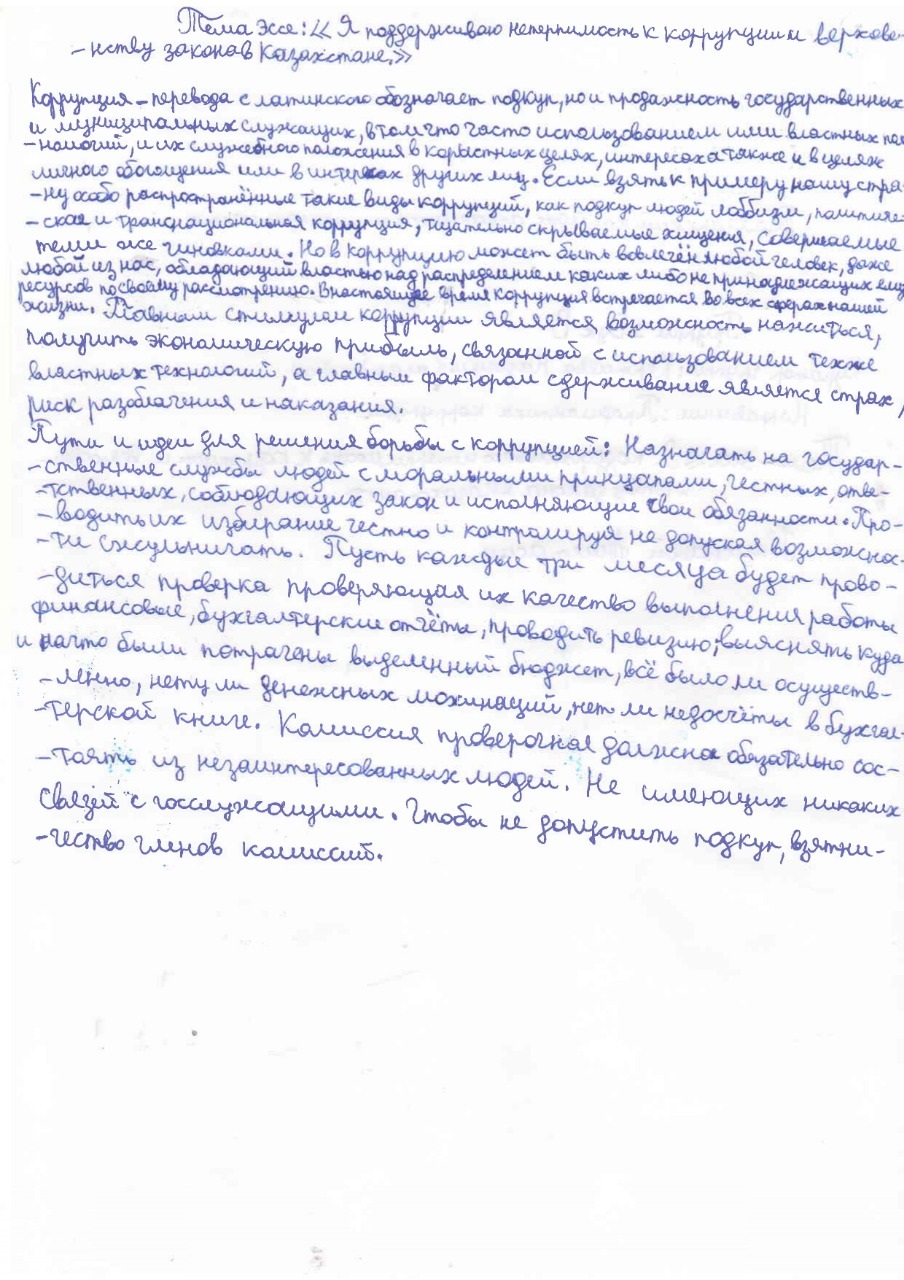 Тема Эссе: «Я поддерживаю нетерпимость к коррупции и верхове-
-нству закона в Казахстане.»
Коррупция - перевода с латинского обозначает подкуп, но и продажность государственных
и муниципальных служащих, в том что часто использованием ими властных пол
-намочий, и их служебного положения в корыстных целях, интересах а также и в целях
личного обогощения или в интересах других лиц. Если взять к примеру нашу стра-
-ну особо распространённые такие виды коррупций, как подкуп людей лоббизм, политиче-
-ская и транснациональная коррупция, тщательно скрываемые хищения, совершаемые
теми же чиновками. Но в коррупцию может быть вовлечён любой человек, даже
любой из нас, обладающий властью над распределением каких либо не принадлежащих ему
ресурсов по своему рассмотрению. В настоящее время коррупция встречается во всех сферах нашей
жизни. Главным стимулом коррупции является возможность нажиться,
получить экономическую прибыль, связанной с использованием тех же
властных технологий, а главным фактором сдерживание является страх,
риск разоблачения и наказания.
Пути и идеи для решения борьбы с коррупцией: Назначать на государ-
-ственные службы людей с моральными принципами, честных, отве-
-тственных, соблюдающих закон и исполняющие свои обязанности. Про-
-водить их избирание честно и контролируя не допуская возможнос-
-ти жульничать. Пусть каждые три месяца будет прово-
-диться проверка проверяющая их качество выполнения работы
финансовые, бухгалтерские отчёты, проводить ревизию, выяснять куда
и на что были потрачены выделенный бюджет, всё было ли осуществ-
-ленно, нету ли денежных мохинаций, нет ли недосчёты в бухгал-
-терской книге. Комиссия проверочная должна обязательно сос-
-таять из незаинтересованных людей. Не имеющих никаких
связей с госслужащими. Чтобы не допустить подкуп, взятни-
-чество членов комиссий.